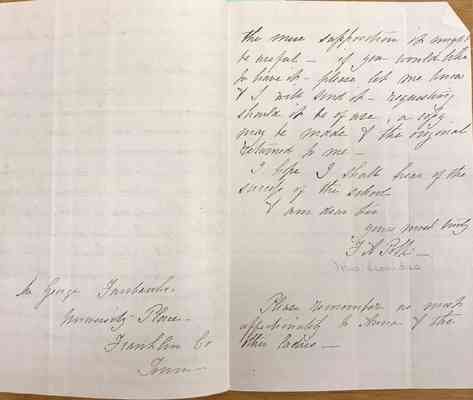 Mr George Fairbanks.
University Place.
Franklin Co
Tenn
the mere supposition it might
be useful - if you would like
to have it - please let me know
& I will send it - requesting
should it be of use, a copy
may be made & the original
returned to me -
I hope I shall hear of the
success of the school
I am dear Sir
yours most truly
F A Polk -
Mrs Leonidas
Please remember me most
affectionately to Anna & the
other ladies -